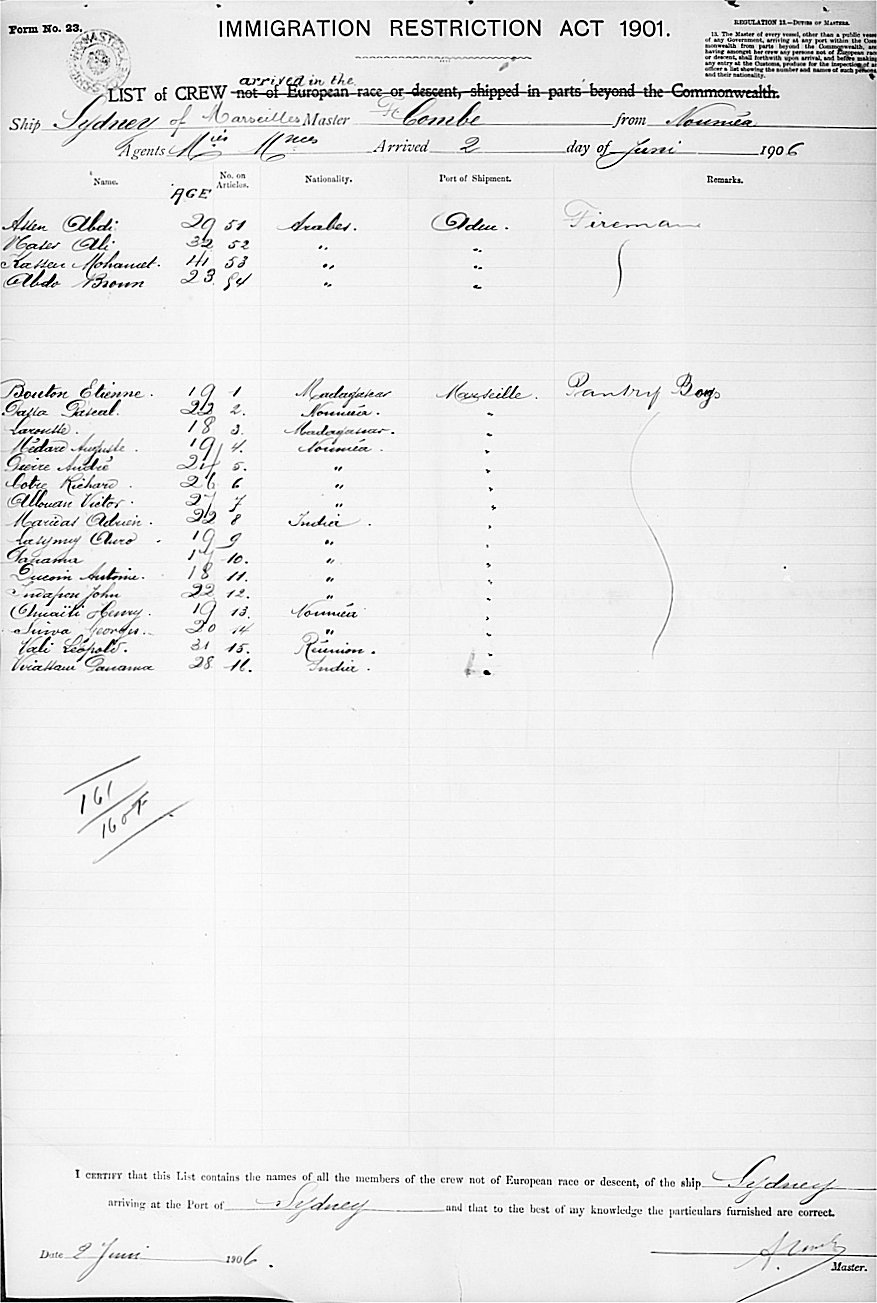 Form No. 23.
IMMIGRATION RESTRICTION ACT 1901.
REGULATION 13.—DUTIES OF MASTERS.
13. The Master of every vessel, other than a public vessel
of any Government, arriving at any port within the Com-
monwealth from parts beyond the Commonwealth, and
having amongst her crew any persons not of European race
or descent, shall forthwith upon arrival, and before making
any entry at the Customs, produce for the inspection of an
officer a list showing the number and names of such persons
and their nationality.
arrived in the
LIST of CREW not of European race or descent, shipped in parts beyond the Commonwealth.
Ship Sydney of Marseilles Master Combe from Nouméa
Agents Mies Mmes Arrived 2 day of Juni 1906
Name. AGE No. on Articles. Nationality. Port of Shipment. Remarks.
Assen Abdi 29 51 Arabes. Aden. Fireman
Naser Ali 32 52 " "
Kassen Mohamet. 41 53 " "
Abdo Broun 23 54 " "
Bouton Etienne. 19 1 Madagascar Marseille. Pantry Boys
Passa Pascal. 22 2. Nouméa. "
Larousse. 18 3. Madagascar. "
Médard Auguste. 19 4. Nouméa. "
Pierre André 24 5. " "
Cotre Richard. 26 6 " "
Allouan Victor. 27 7 " "
Maricas Adrien. 22 8 India. "
19 9 " "
Panama 17 10. " "
Antoine. 18 11. " "
John 22 12. " "
Henry. 19 13. Nouméa "
Georges. 20 14 " "
Vali Léopold. 31 15. Réunion. "
Panama 28 16. India. "
161
160
I CERTIFY that this List contains the names of all the members of the crew not of European race or descent, of the ship Sydney
arriving at the Port of Sydney and that to the best of my knowledge the particulars furnished are correct.
Date 2 Juni 1906.
Master.